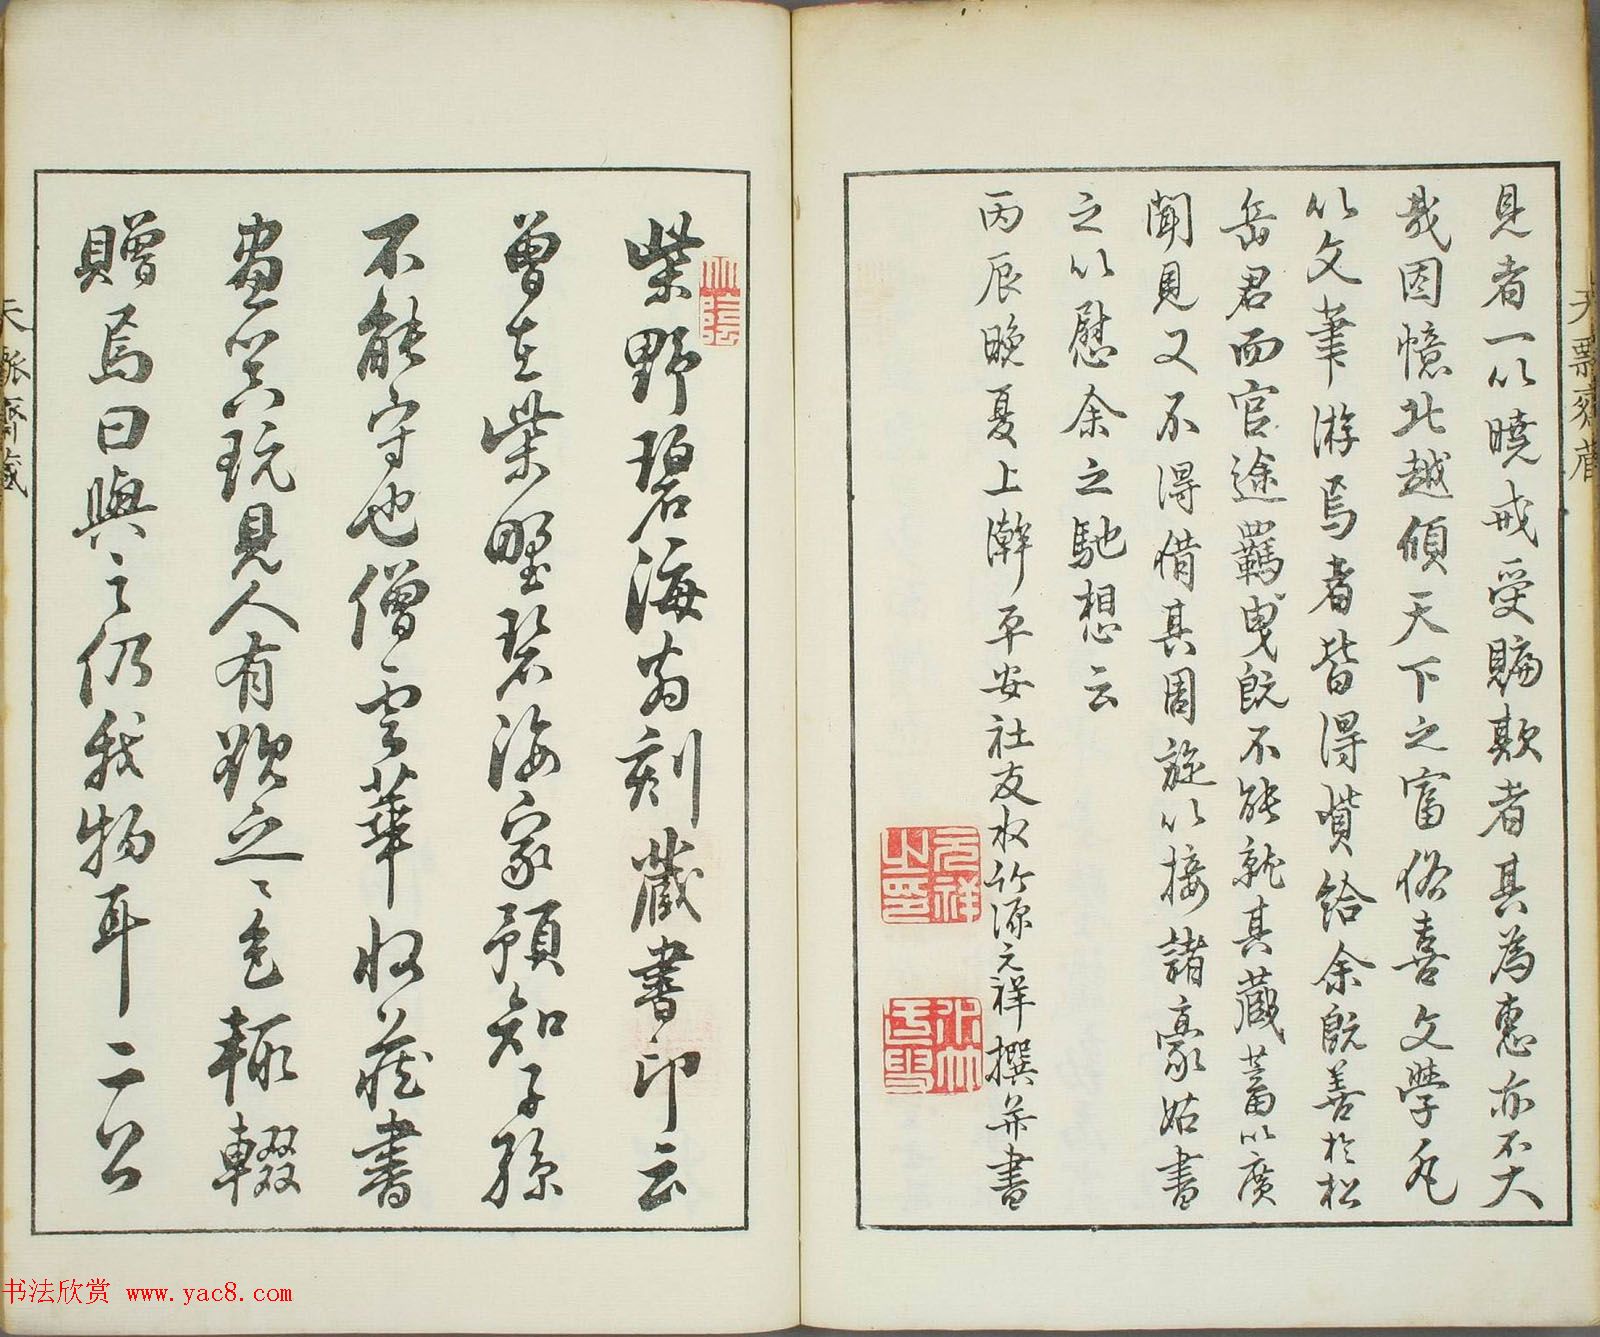 見者一以曉戒受騙欺者其為惠亦不大
哉因憶北越傾天下之富俗喜文學凡
以文筆游焉者皆得貲給余既善於松
岳君而官途羈曳既不能就其藏蓄以廣
聞見又不得借其周旋以接諸豪姑書
之以慰余之馳想云
丙辰晚夏上澣平安社友水竹源元祥撰并書
元祥之印
柴野碧海翁刻藏書印云
曾在柴野碧海家預知子孫
不能守也僧雲華收藏書
畫以共玩見人有欲之之色輒輟
贈焉曰與之仍我物耳二公
書法欣赏 www.yac8.com